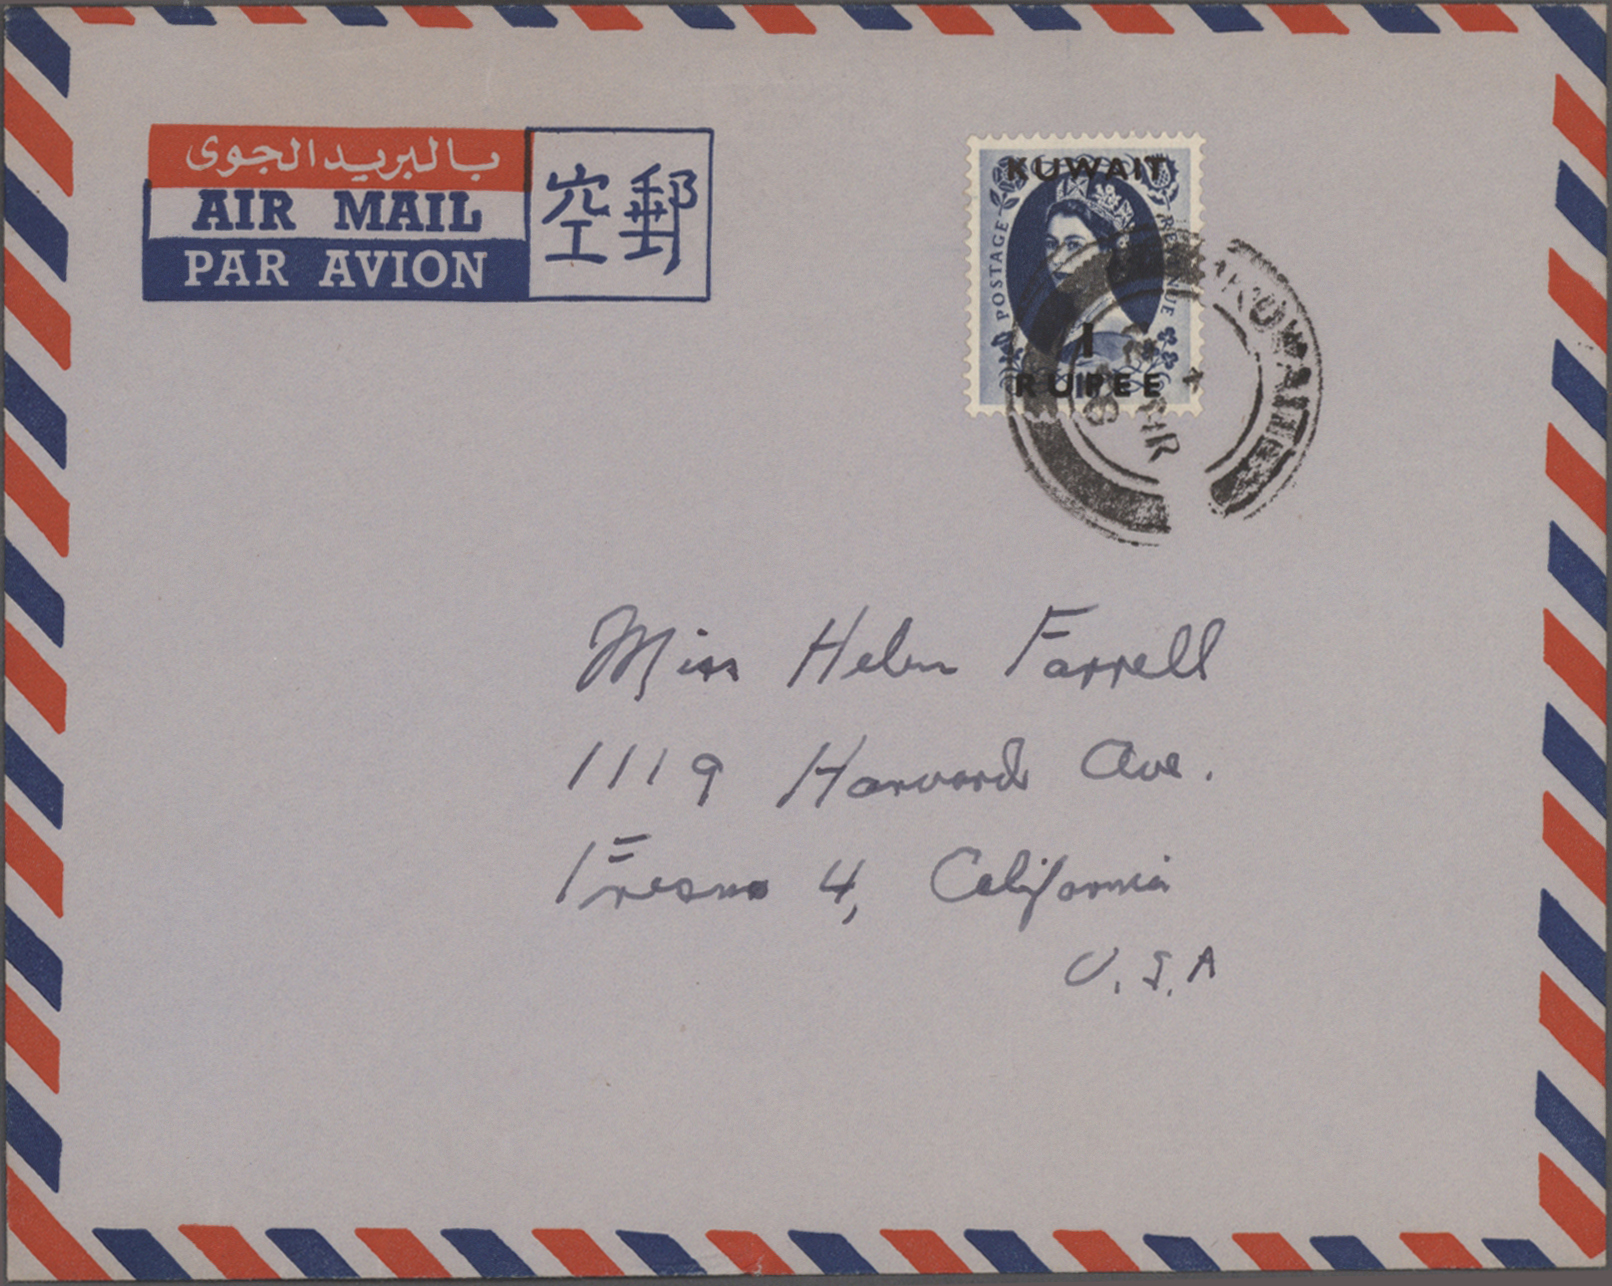 بالبريد الجوى
AIR MAIL
PAR AVION
空郵
KUWAIT
POSTAGE
REVENUE
1
RUPEE
KUWAIT
Miss Helen Farrell
1119 Harvard Ave.
Fresno 4, California
U.S.A